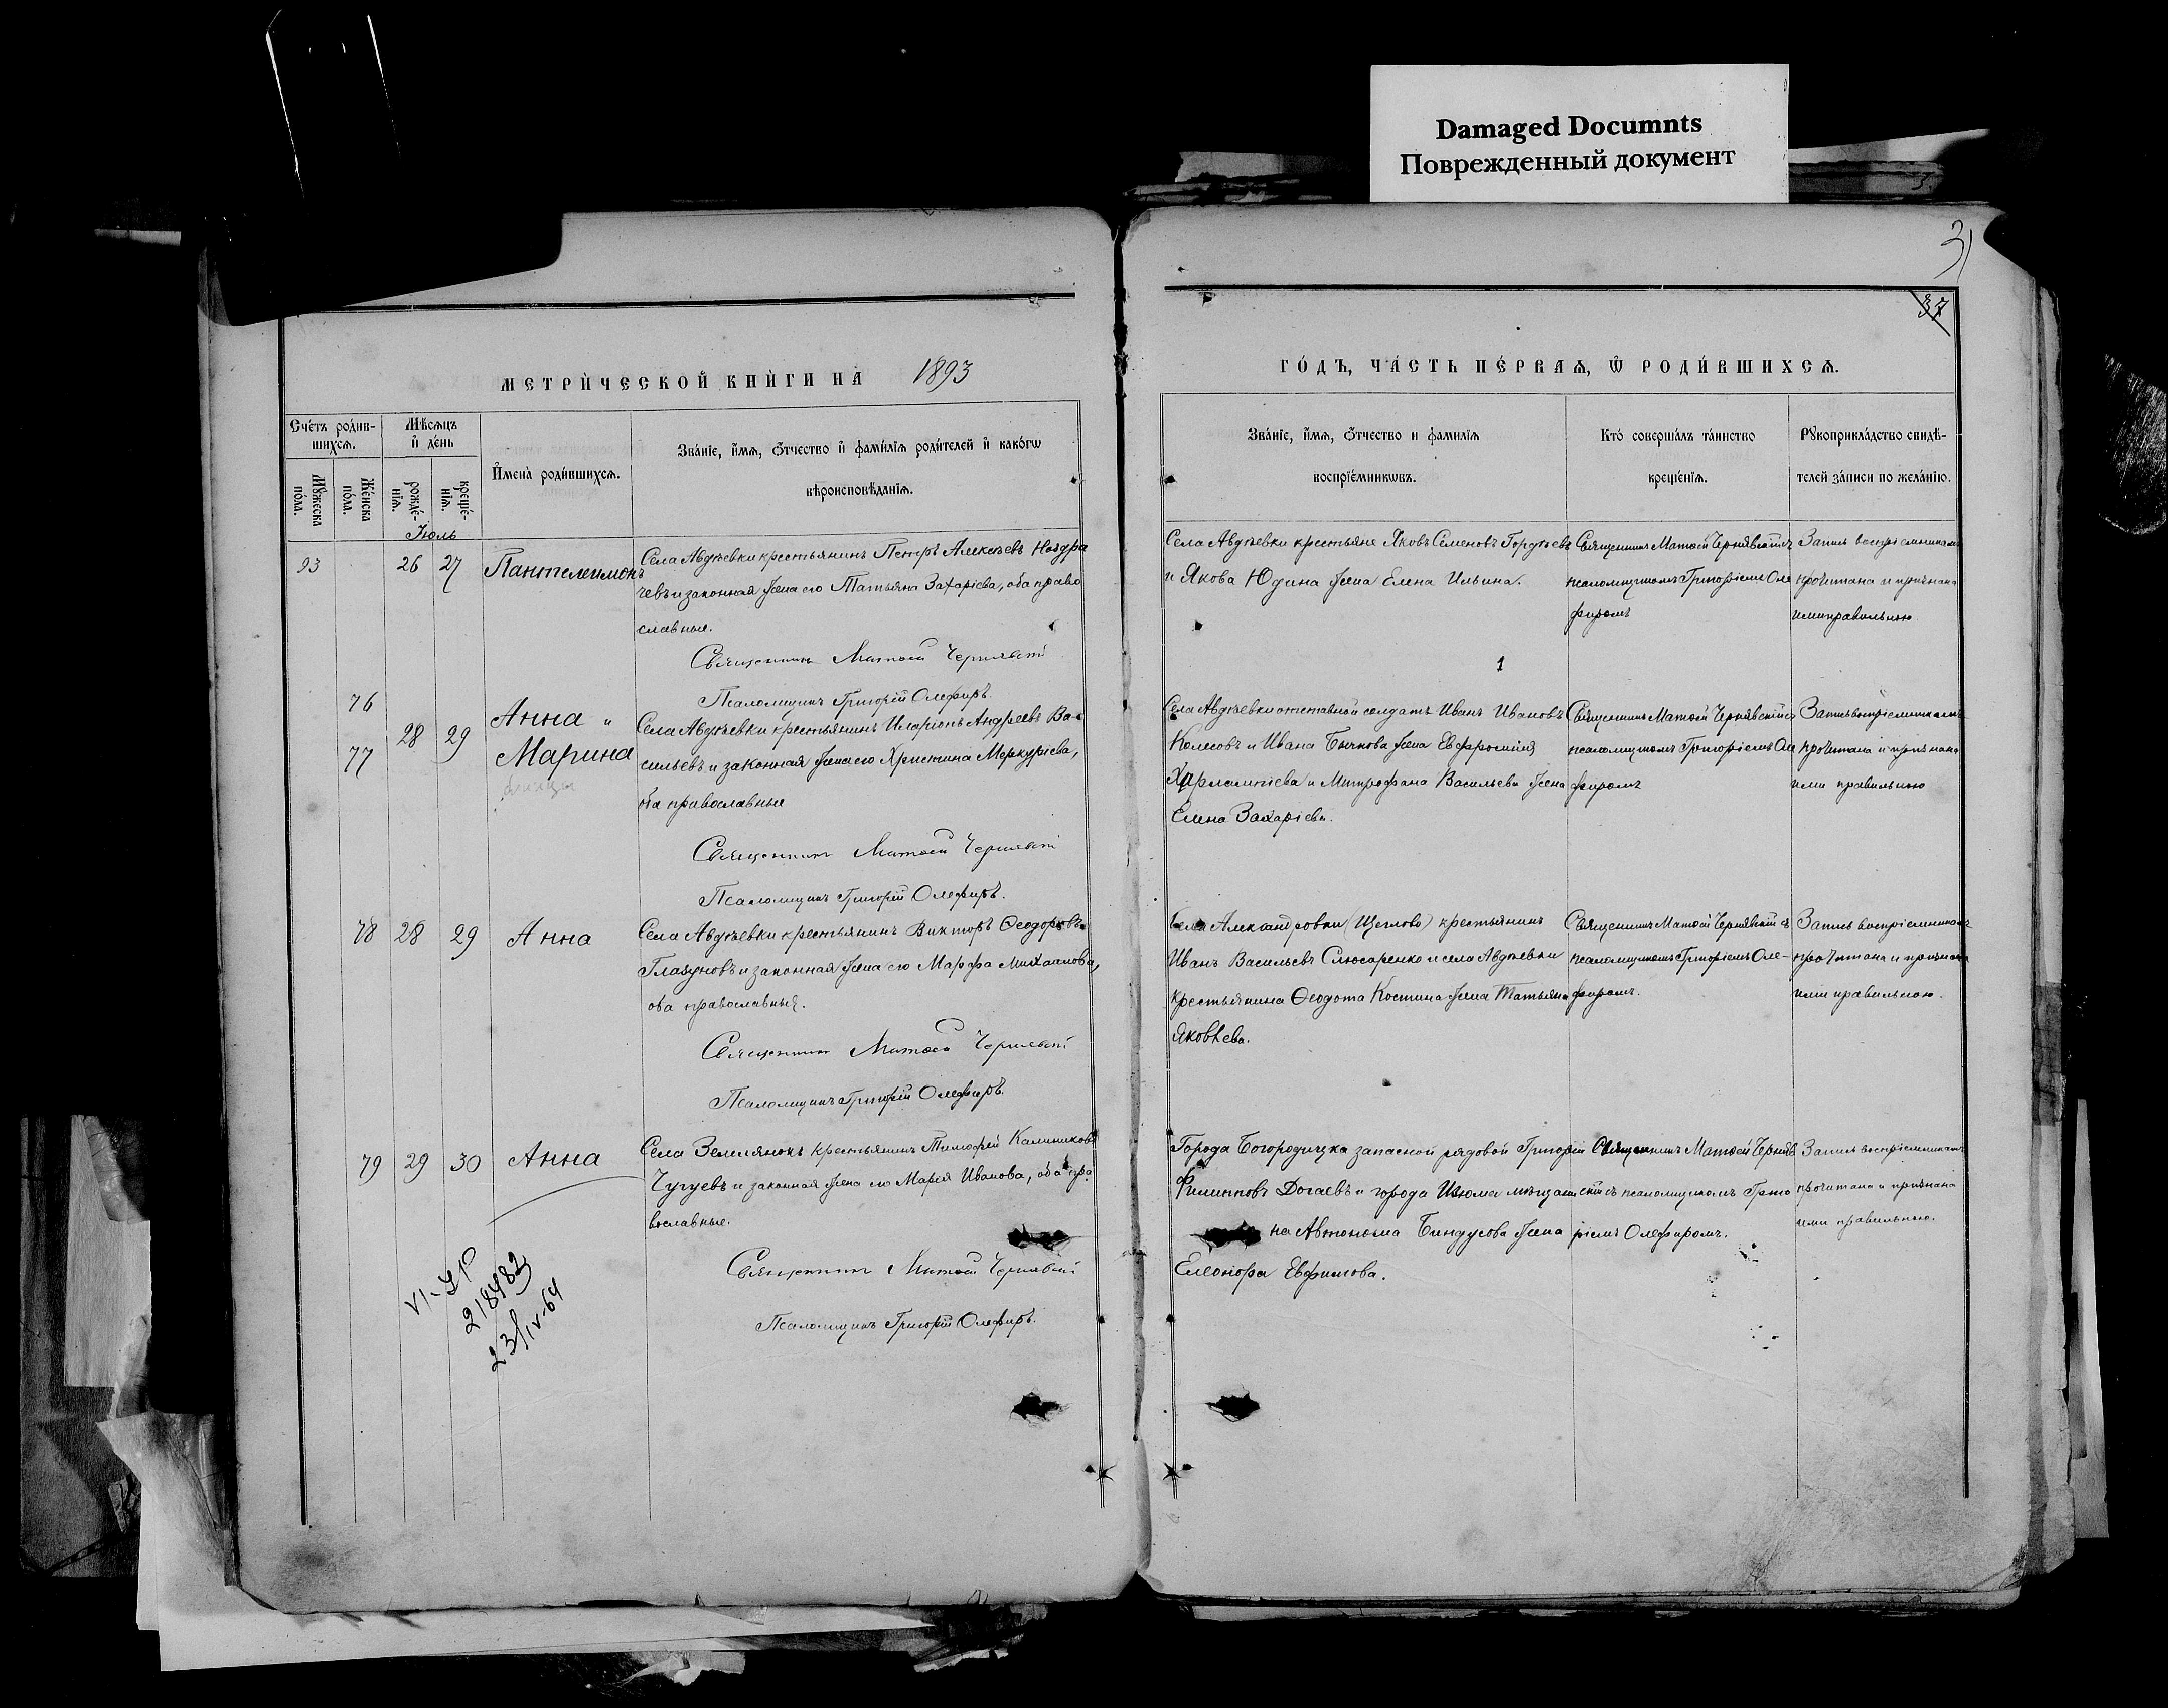 Damaged Documnts
Поврежденный документ
37
МЕТРИ́ЧЕСКОЙ КНИ́ГИ НА 1893
ГО́ДЪ, ЧА́СТЬ ПЕ́РВАѦ, Ѿ РОДИ́ВШИХСѦ.
Сче́тъ роди́в-
шихсѧ.
Мꙋ́жеска по́ла.
Же́нска по́ла.
Мѣ́сѧцъ
и҆ де́нь
рожде́-
нїѧ.
креще́-
нїѧ.
И҆мена̀ роди́вшихсѧ.
Зва́нїе, и҆́мѧ, ѻ҆́тчество и҆ фами́лїѧ роди́телей и҆ како́гѡ
вѣроисповѣ́данїѧ.
Зва́нїе, и҆́мѧ, ѻ҆́тчество и фами́лїѧ
воспрїе́мникѡвъ.
Кто́ соверша́лъ та́инство
креще́нїѧ.
Рꙋкоприкла́дство свидѣ́-
телей за́писи по жела́нїю.
Іюль
93 26 27 Пантелеимонъ
Села Авдѣевки крестьянинъ Петръ Алексѣевъ Ноздра
чевъ и законная жена его Татьяна Захаріева, оба право
славные.
Священникъ Матѳей Чернявскій
Псаломщикъ Григорій Олефиръ.
Села Авдѣевки крестьяне Яковъ Семеновъ Гордѣевъ
и Якова Юдина жена Елена Ильина.
Священникъ Матѳей Чернявскій съ
псаломщикомъ Григоріемъ Оле
фиромъ
Запись воспріемниками
прочитана и признана
ими правильною
1
76 Анна и
77 28 29 Марина
Села Авдѣевки крестьянинъ Иларіонъ Андреевъ Ва-
сильевъ и законная жена его Христина Меркуріева,
оба православные
Священникъ Матѳей Чернявскій
Псаломщикъ Григорій Олефиръ.
Села Авдѣевки отставной солдатъ Иванъ Ивановъ
Колесовъ и Ивана Бычкова жена Евфросинія
Харлампіева и Митрофана Васильева жена
Елена Захаріева.
Священникъ Матѳей Чернявскій съ
псаломщикомъ Григоріемъ Оле
фиромъ
Запись воспріемниками
прочитана и признана
ими правильною
78 28 29 Анна
Села Авдѣевки крестьянинъ Викторъ Ѳеодоровъ
Глазуновъ и законная жена его Марфа Михаилова,
оба православные.
Священникъ Матѳей Чернявскій
Псаломщикъ Григорій Олефиръ.
Села Александровки (Щеглово) крестьянинъ
Иванъ Васильевъ Слюсаренко и села Авдѣевки
крестьянина Ѳеодота Костина жена Татьяна
Яковлева.
Священникъ Матѳей Чернявскій съ
псаломщикомъ Григоріемъ Оле-
фиромъ.
Запись воспріемниками
прочитана и признана
ими правильною.
79 29 30 Анна
Села Землянокъ крестьянинъ Тимофей Калиниковъ
Чугуевъ и законная жена его Марія Иванова, оба пра
вославные.
Священникъ Матѳей Чернявскій
Псаломщикъ Григорій Олефиръ.
Города Богородицка запасной рядовой Григорій
Филипповъ Догаевъ и города Изюма мѣщани
на Автонома Биндусова жена
Елеонора Евфимова.
Священникъ Матѳей Черняв
скій съ псаломщикомъ Григо
ріемъ Олефиромъ.
Запись воспріемниками
прочитана и признана
ими правильною.
218482
23/IV-64